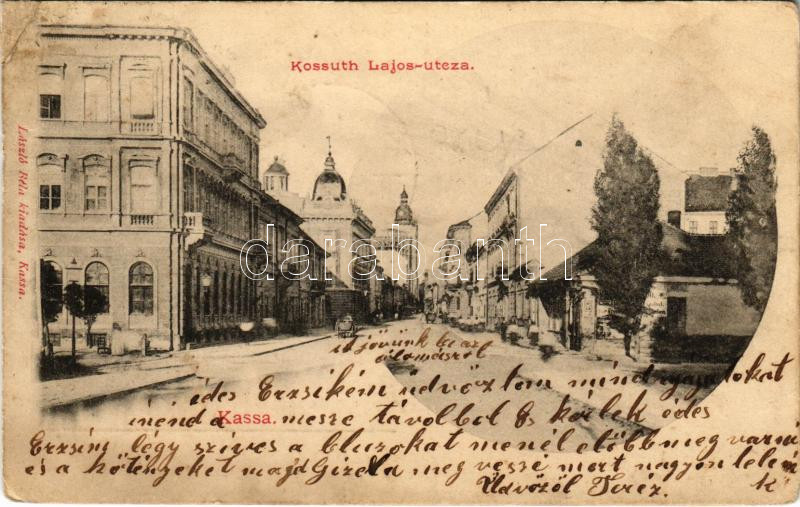 Kossuth Lajos-utcza.
László Béla kiadása, Kassa.
darabanth
itt jövünk ki az
álomásról
édes Erzsikém üdvözlom mindnyajatokat
mend a messe távolbol És kérlek édes
Kassa.
Erzsim légy szives a bluzokat menél előbb meg varni
és a kötényeket majd Gizela meg veszi mert nagyon
Üdvözöl Teréz.